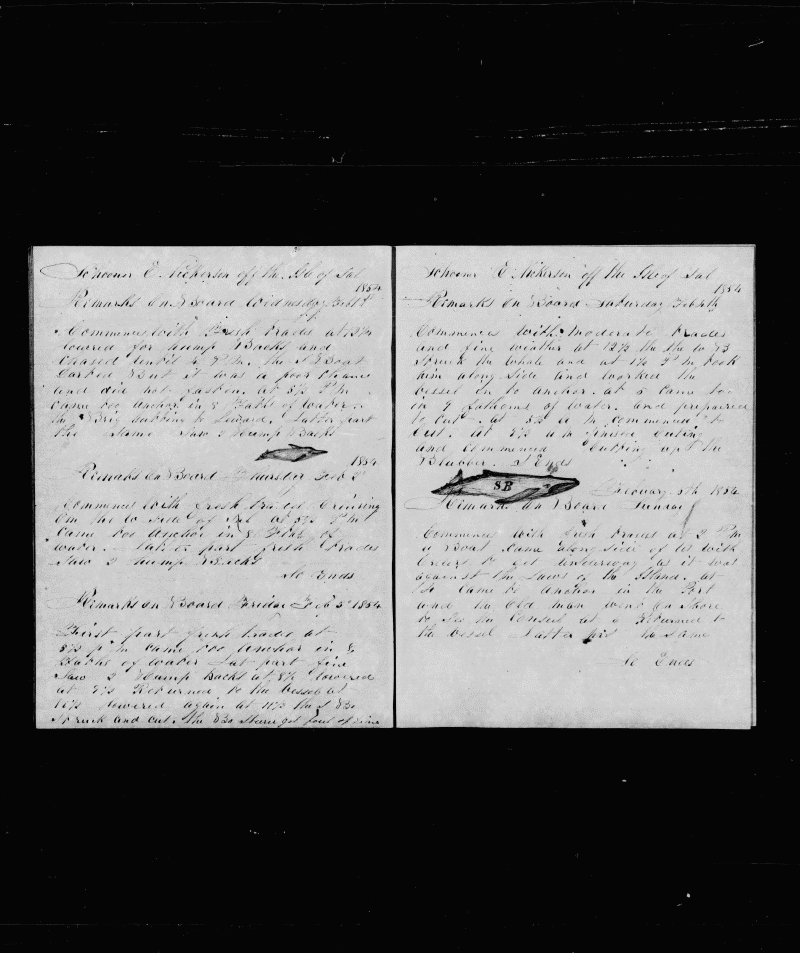 Schooner E. Nickerson off the Ile of Sal
1854
Remarks on Board Wednesday Feb 1st
Commences with Fresh trades at
lowered for hump Backs and
Chased until 4 P m. the Boat
Darted But it was a poor chance
and did not fasten. at 5½ P m
Came too anchor in 8 Faths of water
the Brig to Leward. Latter part
the same Saw 2 hump Backs
1854
Remarks on Board Thursday Feb 2d
Commences with fresh trades Cruising
on the side of Sal at 5½ P m
Came too anchor in 8 Faths of
water. Latter part fresh trades
Saw 2 hump Backs
So Ends
Remarks on Board Friday Feb 3d 1854
First part fresh trades at
5½ P m Came too anchor in 8
Faths of water Lat part fine
Saw 2 Hump Backs at 8½ lowered
at 9½ Returned to the vessel at
10½ lowered again at 11½ the
Struck and cut. the got foul of line
Schooner E. Nickerson off the Ile of Sal
1854
Remarks on Board Saturday Feb 4th
Commences with moderate trades
and fine weather at 12½ the B
Struck the whale and at 1½ P m took
him along side and worked the
vessel in to anchor. at 5 came too
in 9 fathoms of water. and prepaired
to cut. at 5½ a m commenced to
cut. at 8½ a m finised cuting
and commenced cutting up the
Blubber. So Ends
SB
Febouary 5th 1854
Remarks on Board Sunday
Commences with fresh trades at 2 P m
a Boat Came along side of us with
orders to get underway as it was
against the Laws of the Island. at
Came to anchor in the Port
and the Old man went on Shore
to See the Consul at 6 Returned to
the vessel Latter prt the same
So Ends